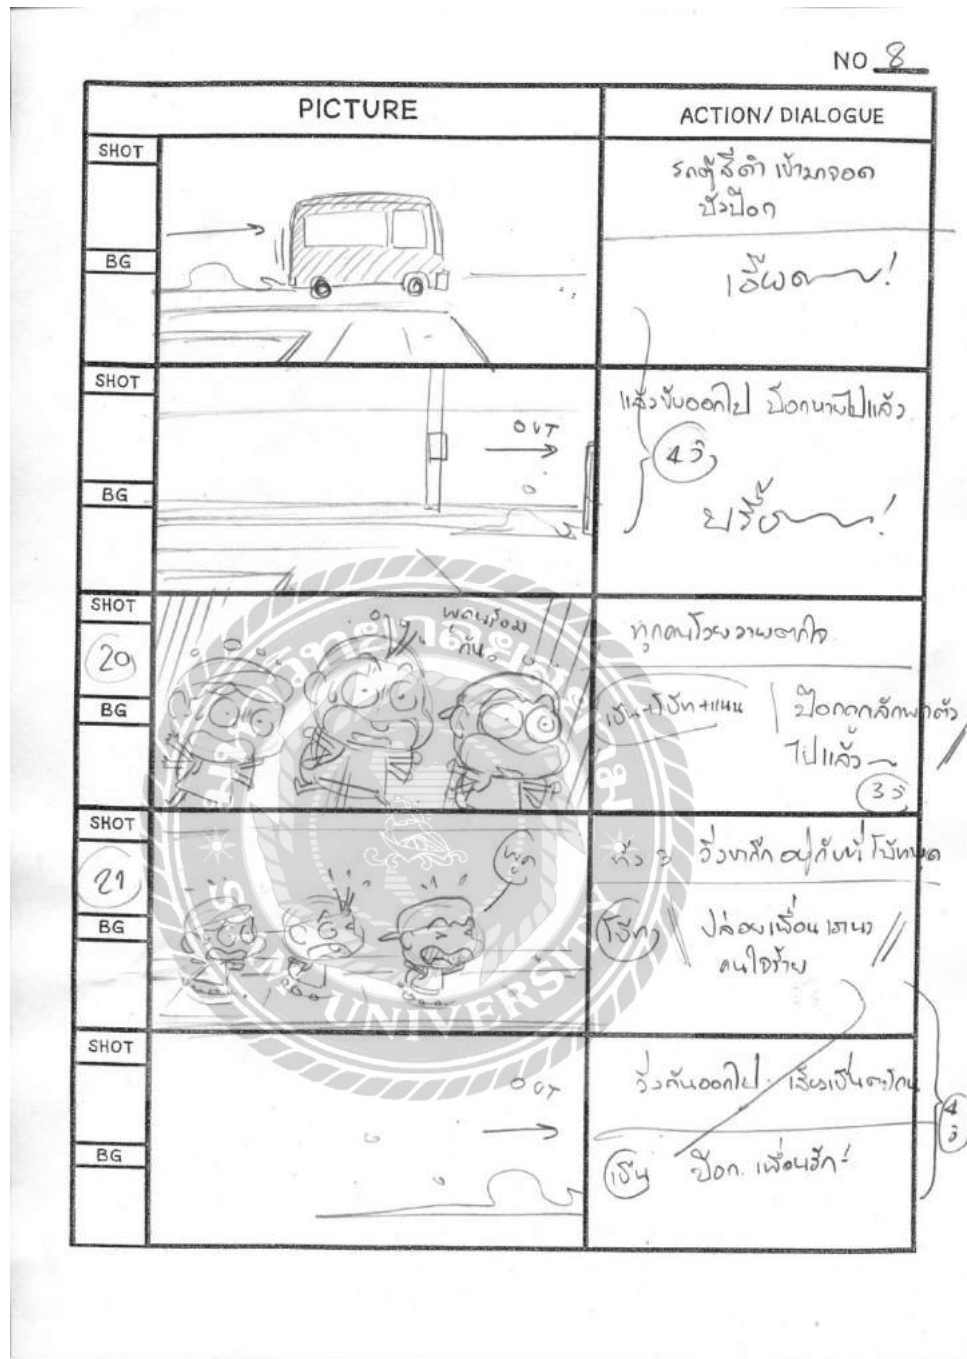 NO 8
PICTURE
ACTION/ DIALOGUE
SHOT
BG
รถตู้สีดำ เข้ามาจอด
เอี๊ยด !
SHOT
BG
OUT
แล้วขับออกไป ป๊อกหายไปแล้ว
4 วิ
บรื้น !
SHOT
20
BG
พูดพร้อม
กัน
ทุกคนโวยวายตกใจ
ป๊อกถูกลักพาตัว
ไปแล้ว
3 วิ
SHOT
21
BG
พูด
ทั้ง 3 วิ่ง อยู่กับที่
ปล่อยเพื่อนเรานะ
คนใจร้าย
SHOT
BG
OUT
วิ่งกันออกไป เสียงเป็นตะโกน
4 วิ
ป๊อก เพื่อนรัก
มหาวิทยาลัยสยาม
SIAM UNIVERSITY